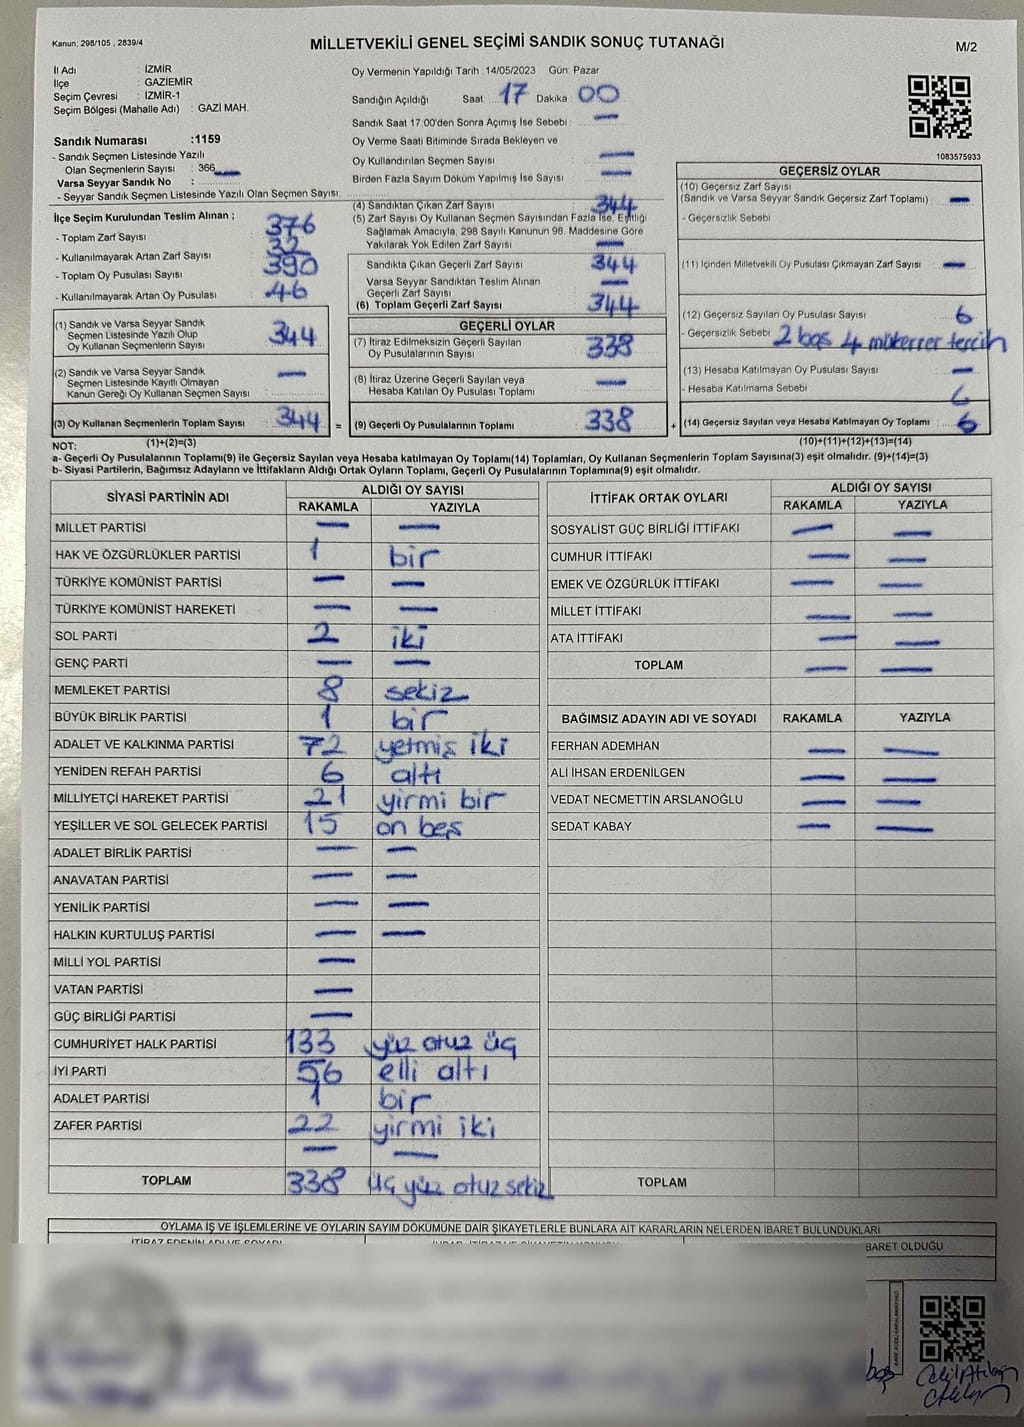 Kanun: 298/105 , 2839/4
MİLLETVEKİLİ GENEL SEÇİMİ SANDIK SONUÇ TUTANAĞI
M/2
İl Adı : İZMİR
İlçe : GAZİEMİR
Seçim Çevresi : İZMİR-1
Seçim Bölgesi (Mahalle Adı) : GAZİ MAH.
Sandık Numarası :1159
- Sandık Seçmen Listesinde Yazılı
Olan Seçmenlerin Sayısı : 366
Varsa Seyyar Sandık No :
- Seyyar Sandık Seçmen Listesinde Yazılı Olan Seçmen Sayısı:
Oy Vermenin Yapıldığı Tarih :14/05/2023 Gün: Pazar
Sandığın Açıldığı Saat 17 Dakika 00
Sandık Saat 17:00'den Sonra Açımış İse Sebebi : —
Oy Verme Saati Bitiminde Sırada Bekleyen ve
Oy Kullandırılan Seçmen Sayısı —
Birden Fazla Sayım Döküm Yapılmış İse Sayısı : —
1083575933
İlçe Seçim Kurulundan Teslim Alınan ;
- Toplam Zarf Sayısı : 376
- Kullanılmayarak Artan Zarf Sayısı : 32
- Toplam Oy Pusulası Sayısı : 390
- Kullanılmayarak Artan Oy Pusulası : 46
(1) Sandık ve Varsa Seyyar Sandık
Seçmen Listesinde Yazılı Olup
Oy Kullanan Seçmenlerin Sayısı : 344
(2) Sandık ve Varsa Seyyar Sandık
Seçmen Listesinde Kayıtlı Olmayan
Kanun Gereği Oy Kullanan Seçmen Sayısı : —
(3) Oy Kullanan Seçmenlerin Toplam Sayısı : 344 =
(1)+(2)=(3)
(4) Sandıktan Çıkan Zarf Sayısı : 344
(5) Zarf Sayısı Oy Kullanan Seçmen Sayısından Fazla İse, Eşitliği
Sağlamak Amacıyla, 298 Sayılı Kanunun 98. Maddesine Göre
Yakılarak Yok Edilen Zarf Sayısı : —
Sandıkta Çıkan Geçerli Zarf Sayısı : 344
Varsa Seyyar Sandıktan Teslim Alınan
Geçerli Zarf Sayısı : —
(6) Toplam Geçerli Zarf Sayısı : 344
GEÇERLİ OYLAR
(7) İtiraz Edilmeksizin Geçerli Sayılan
Oy Pusulalarının Sayısı : 338
(8) İtiraz Üzerine Geçerli Sayılan veya
Hesaba Katılan Oy Pusulası Toplamı : —
(9) Geçerli Oy Pusulalarının Toplamı : 338 +
GEÇERSİZ OYLAR
(10) Geçersiz Zarf Sayısı
(Sandık ve Varsa Seyyar Sandık Geçersiz Zarf Toplamı) : —
- Geçersizlik Sebebi :
(11) İçinden Milletvekili Oy Pusulası Çıkmayan Zarf Sayısı : —
(12) Geçersiz Sayılan Oy Pusulası Sayısı : 6
- Geçersizlik Sebebi : 2 boş 4 mükerrer tercih
(13) Hesaba Katılmayan Oy Pusulası Sayısı : —
- Hesaba Katılmama Sebebi :
(14) Geçersiz Sayılan veya Hesaba Katılmayan Oy Toplamı : 6
(10)+(11)+(12)+(13)=(14)
NOT:
a- Geçerli Oy Pusulalarının Toplamı(9) ile Geçersiz Sayılan veya Hesaba katılmayan Oy Toplamı(14) Toplamları, Oy Kullanan Seçmenlerin Toplam Sayısına(3) eşit olmalıdır. (9)+(14)=(3)
b- Siyasi Partilerin, Bağımsız Adayların ve İttifakların Aldığı Ortak Oyların Toplamı, Geçerli Oy Pusulalarının Toplamına(9) eşit olmalıdır.
SİYASİ PARTİNİN ADI ALDIĞI OY SAYISI
RAKAMLA YAZIYLA
MİLLET PARTİSİ — —
HAK VE ÖZGÜRLÜKLER PARTİSİ 1 bir
TÜRKİYE KOMÜNİST PARTİSİ — —
TÜRKİYE KOMÜNİST HAREKETİ — —
SOL PARTİ 2 iki
GENÇ PARTİ — —
MEMLEKET PARTİSİ 8 sekiz
BÜYÜK BİRLİK PARTİSİ 1 bir
ADALET VE KALKINMA PARTİSİ 72 yetmiş iki
YENİDEN REFAH PARTİSİ 6 altı
MİLLİYETÇİ HAREKET PARTİSİ 21 yirmi bir
YEŞİLLER VE SOL GELECEK PARTİSİ 15 on beş
ADALET BİRLİK PARTİSİ — —
ANAVATAN PARTİSİ — —
YENİLİK PARTİSİ — —
HALKIN KURTULUŞ PARTİSİ — —
MİLLİ YOL PARTİSİ —
VATAN PARTİSİ —
GÜÇ BİRLİĞİ PARTİSİ —
CUMHURİYET HALK PARTİSİ 133 yüz otuz üç
İYİ PARTİ 56 elli altı
ADALET PARTİSİ 1 bir
ZAFER PARTİSİ 22 yirmi iki
— —
TOPLAM 338 üç yüz otuz sekiz
İTTİFAK ORTAK OYLARI ALDIĞI OY SAYISI
RAKAMLA YAZIYLA
SOSYALİST GÜÇ BİRLİĞİ İTTİFAKI — —
CUMHUR İTTİFAKI — —
EMEK VE ÖZGÜRLÜK İTTİFAKI — —
MİLLET İTTİFAKI — —
ATA İTTİFAKI — —
TOPLAM — —
BAĞIMSIZ ADAYIN ADI VE SOYADI RAKAMLA YAZIYLA
FERHAN ADEMHAN — —
ALİ İHSAN ERDENİLGEN — —
VEDAT NECMETTİN ARSLANOĞLU — —
SEDAT KABAY — —
TOPLAM
OYLAMA İŞ VE İŞLEMLERİNE VE OYLARIN SAYIM DÖKÜMÜNE DAİR ŞİKAYETLERLE BUNLARA AİT KARARLARIN NELERDEN İBARET BULUNDUKLARI
BARET OLDUĞU
boş